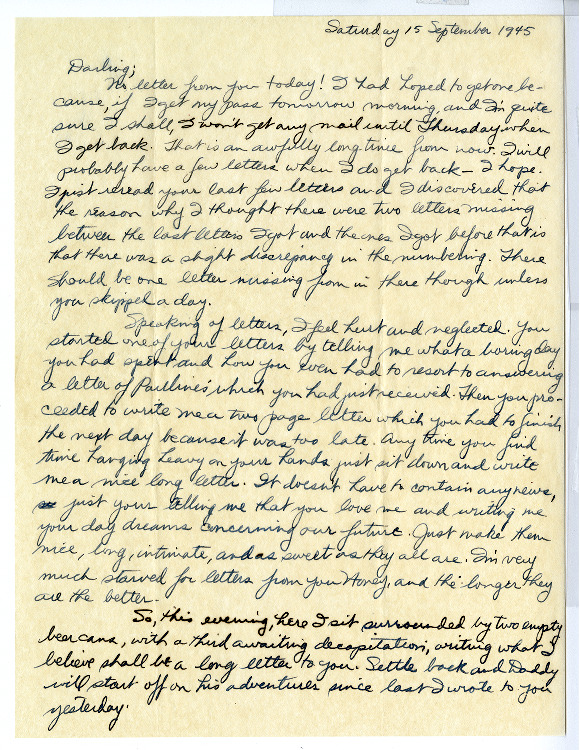 Saturday 15 September 1945
Darling;
No letter from you today! I had hoped to get one be-
cause, if I get my pass tomorrow morning, and I'm quite
sure I shall, I won't get any mail until Thursday when
I get back. That is an awfully long time from now. I will
probably have a few letters when I do get back – I hope.
I just reread your last few letters and I discovered that
the reason why I thought there were two letters missing
between the last letters I got and the ones I got before that is
that there was a slight discrepancy in the numbering. There
should be one letter missing from in there though unless
you skipped a day.
Speaking of letters, I feel hurt and neglected. You
started one of your letters by telling me what a boring day
you had spent and how you even had to resort to answering
a letter of Pauline's which you had just received. Then you pro-
ceeded to write me a two page letter which you had to finish
the next day because it was too late. Any time you find
time hanging heavy on your hands just sit down and write
me a nice long letter. It doesn't have to contain any news,
just your telling me that you love me and writing me
your day dreams concerning our future. Just make them
nice, long, intimate, and as sweet as they all are. I'm very
much starved for letters from you Honey, and the longer they
are the better.
So, this evening, here I sit surrounded by two empty
beer cans, with a third awaiting decapitation, writing what I
believe shall be a long letter to you. Settle back and Daddy
will start off on his adventures since last I wrote to you
yesterday.